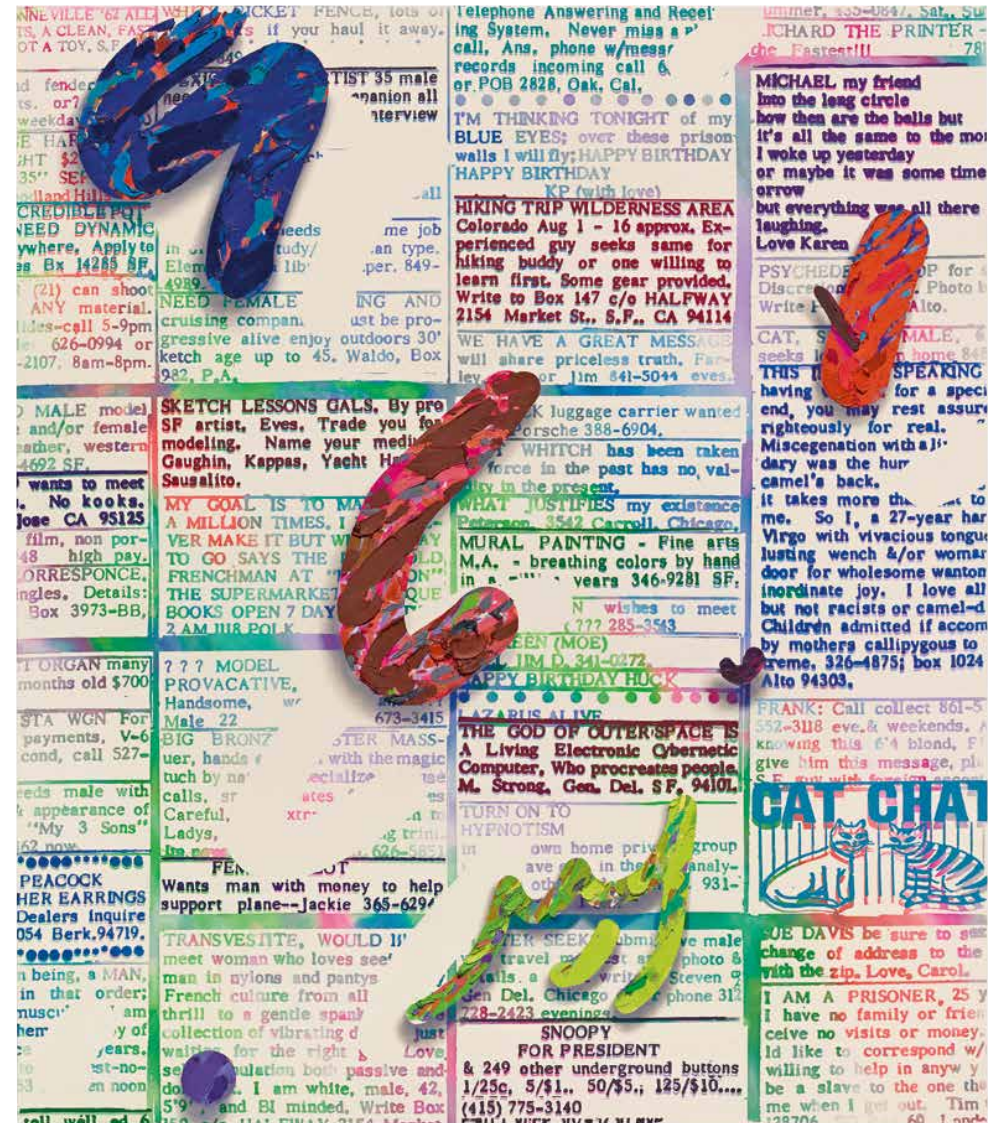 NNEVILLE '62 ALL
TS, A CLEAN, FAS
OT A TOY, S.F.
fender
ts. or?
weekday
HT $2
35" SE
dland Hill
CREDIBLE POT
NEED DYNAMIC
ywhere, Apply to
es Bx 14285 SF
(21) can shoot
ANY material.
des-call 5-9pm
626-0994 or
-2107, 8am-8pm.
MALE model
and/or female
ather, western
4692 SF.
wants to meet
No kooks.
Jose CA 95125
film, non por-
48 high pay.
ORRESPONCE,
ngles. Details:
Box 3973-BB,
T ORGAN many
months old $700
STA WGN For
payments, V-6
cond, call 527-
eds male with
appearance of
"My 3 Sons"
62 now.
PEACOCK
HER EARRINGS
Dealers inquire
054 Berk.94719.
n being, a MAN,
in that order;
muscu am
hem y of
years.
est-no-
53 en noon
CKET FENCE, lots of
s if you haul it away.
TIST 35 male
nee panion all
nterview
all
needs me job
in tudy/ an type.
Elem lib per. 849-
4989.
NEED FEMALE ING AND
cruising compan ust be pro-
gressive alive enjoy outdoors 30'
ketch age up to 45. Waldo, Box
982, P.A.
SKETCH LESSONS GALS. By pro
SF artist, Eves. Trade you for
modeling. Name your mediu
Gaughin, Kappas, Yacht H
Sausalito.
MY GOAL IS TO MA
A MILLION TIMES, I
VER MAKE IT BUT W DAY
TO GO SAYS THE OLD
FRENCHMAN AT " ON"
THE SUPERMARKET QUE
BOOKS OPEN 7 DAY
2 AM 1118 POLK
? ? ? MODEL
PROVACATIVE,
Handsome, w
Male 22 673-3415
BIG BRONZ STER MASS-
uer, hands with the magic
tuch by na ecialize se
calls, sr ates es
Careful, xtr n to
Ladys, g trim.
626-5851
FEM OT
Wants man with money to help
support plane--Jackie 365-6294
TRANSVESTITE, WOULD li
meet woman who loves see
man in nylons and pantys
French culture from all
thrill to a gentle spank
collection of vibrating d just
waiting for the right Love,
se pulation both passive and
do I am white, male, 42,
5'9" and BI minded, Write Box
Telephone Answering and Recei
ing System. Never miss a p
call, Ans. phone w/messr
records incoming call 6
or POB 2828, Oak. Cal.
I'M THINKING TONIGHT of my
BLUE EYES; over these prison
walls I will fly; HAPPY BIRTHDAY
HAPPY BIRTHDAY
KP (with love)
HIKING TRIP WILDERNESS AREA
Colorado Aug 1 - 16 approx. Ex-
perienced guy seeks same for
hiking buddy or one willing to
learn first. Some gear provided.
Write to Box 147 c/o HALFWAY
2154 Market St., S.F., CA 94114
WE HAVE A GREAT MESSAGE
will share priceless truth. Far-
ley or Jim 841-5044 eves.
K luggage carrier wanted
Porsche 388-6904.
WHITCH has been taken
force in the past has no val-
ity in the present.
WHAT JUSTIFIES my existence
Peterson, 3542 Carroll, Chicago.
MURAL PAINTING - Fine arts
M.A. - breathing colors by hand
in a years 346-9281 SF.
N wishes to meet
(??? 285-3543
EEN (MOE)
JIM D. 341-0272.
HAPPY BIRTHDAY HUCK
LAZARUS ALIVE
THE GOD OF OUTER SPACE IS
A Living Electronic Cybernetic
Computer, Who procreates people.
M. Strong, Gen. Del. S F. 94101.
TURN ON TO
HYPNOTISM
in own home priv group
ave in the analy-
oth 931-
TER SEEK ubmi ve male
travel m st a photo &
ails. a writ Steven
Gen Del. Chicago phone 312
728-2423 evenings.
SNOOPY
FOR PRESIDENT
& 249 other underground buttons
1/25c, 5/$1.. 50/$5.; 125/$10....
(415) 775-3140
ummer, 453-0847, Sat., Su
ICHARD THE PRINTER -
the Fastest!!! 78
MICHAEL my friend
into the long circle
how then are the balls but
it's all the same to the mo
I woke up yesterday
or maybe it was some time
orrow
but everything was all there
laughing.
Love Karen
PSYCHEDE OP for s
Discre Photo b
Write Alto.
CAT, S MALE,
seeks home 84
THIS I SPEAKING
having for a speci
end, you may rest assure
righteously for real.
Miscegenation with a li
dary was the hum
camel's back.
it takes more th to
me. So I, a 27-year har
Virgo with vivacious tongue
lusting wench &/or woman
door for wholesome wanton
inordinate joy. I love all
but not racists or camel-d
Children admitted if accom
by mothers callipygous to
treme, 326-4875; box 1024
Alto 94303.
FRANK: Call collect 861-5
552-3118 eve.& weekends.
knowing this 6'4 blond, F
give him this message, pl
S.F. guy with foreign accent
CAT CHAT
SUE DAVIS be sure to se
change of address to the
with the zip. Love, Carol.
I AM A PRISONER, 25 y
I have no family or frien
ceive no visits or money.
ld like to correspond w/
willing to help in anyw y
be a slave to the one th
me when I get out. Tim